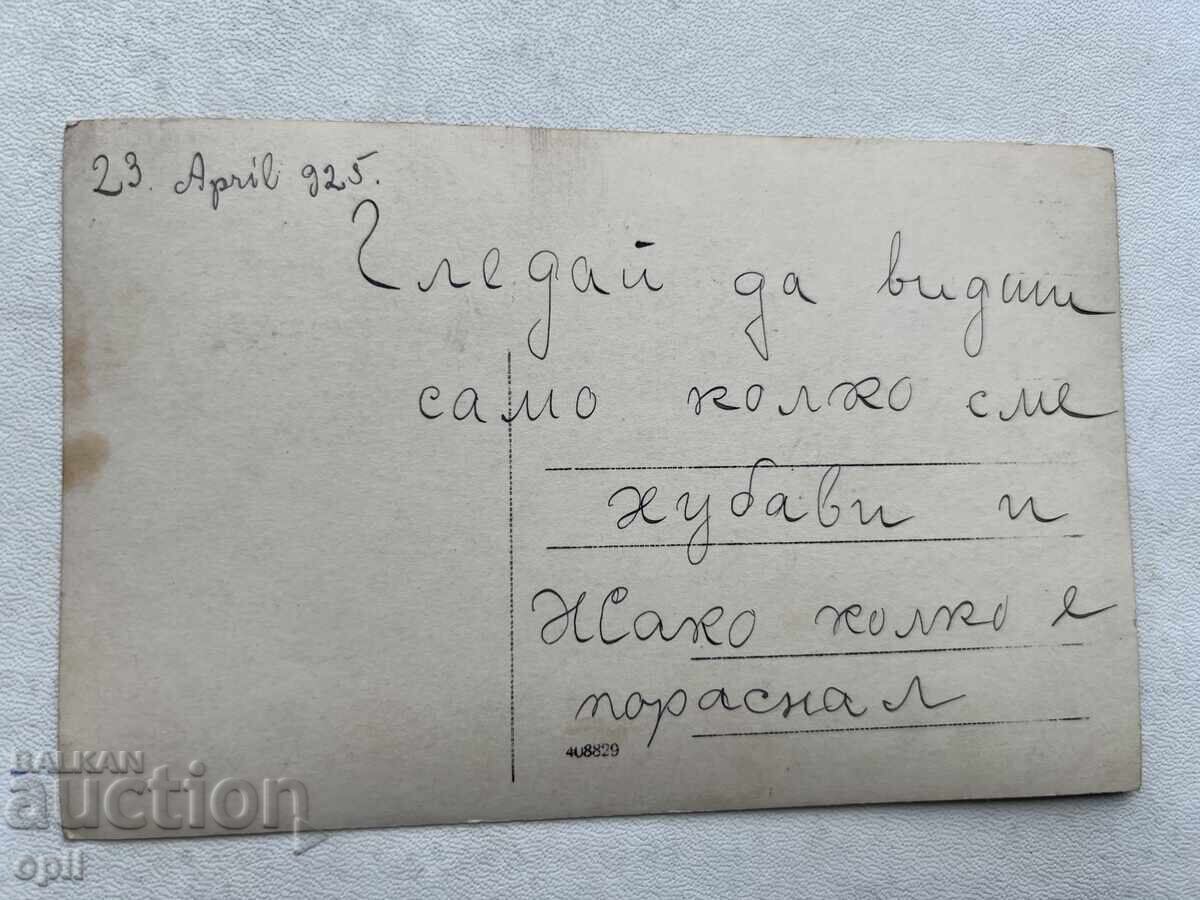 23. April 925.
Гледай да видиш
само колко сме
хубави и
Жако колко е
пораснал
408829
BALKAN
auction
opil